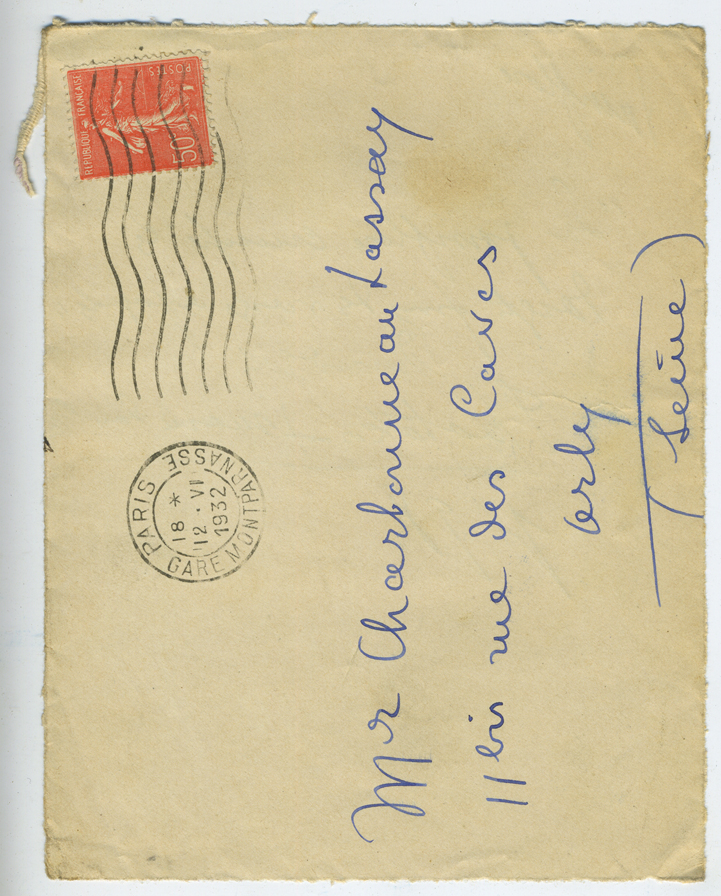 REPUBLIQUE FRANÇAISE
POSTES
50c
PARIS GARE MONTPARNASSE
18 *
12 . VII
1932
Mr Charbonneau Lassay
11 bis rue des Caves
Orly
(Seine)